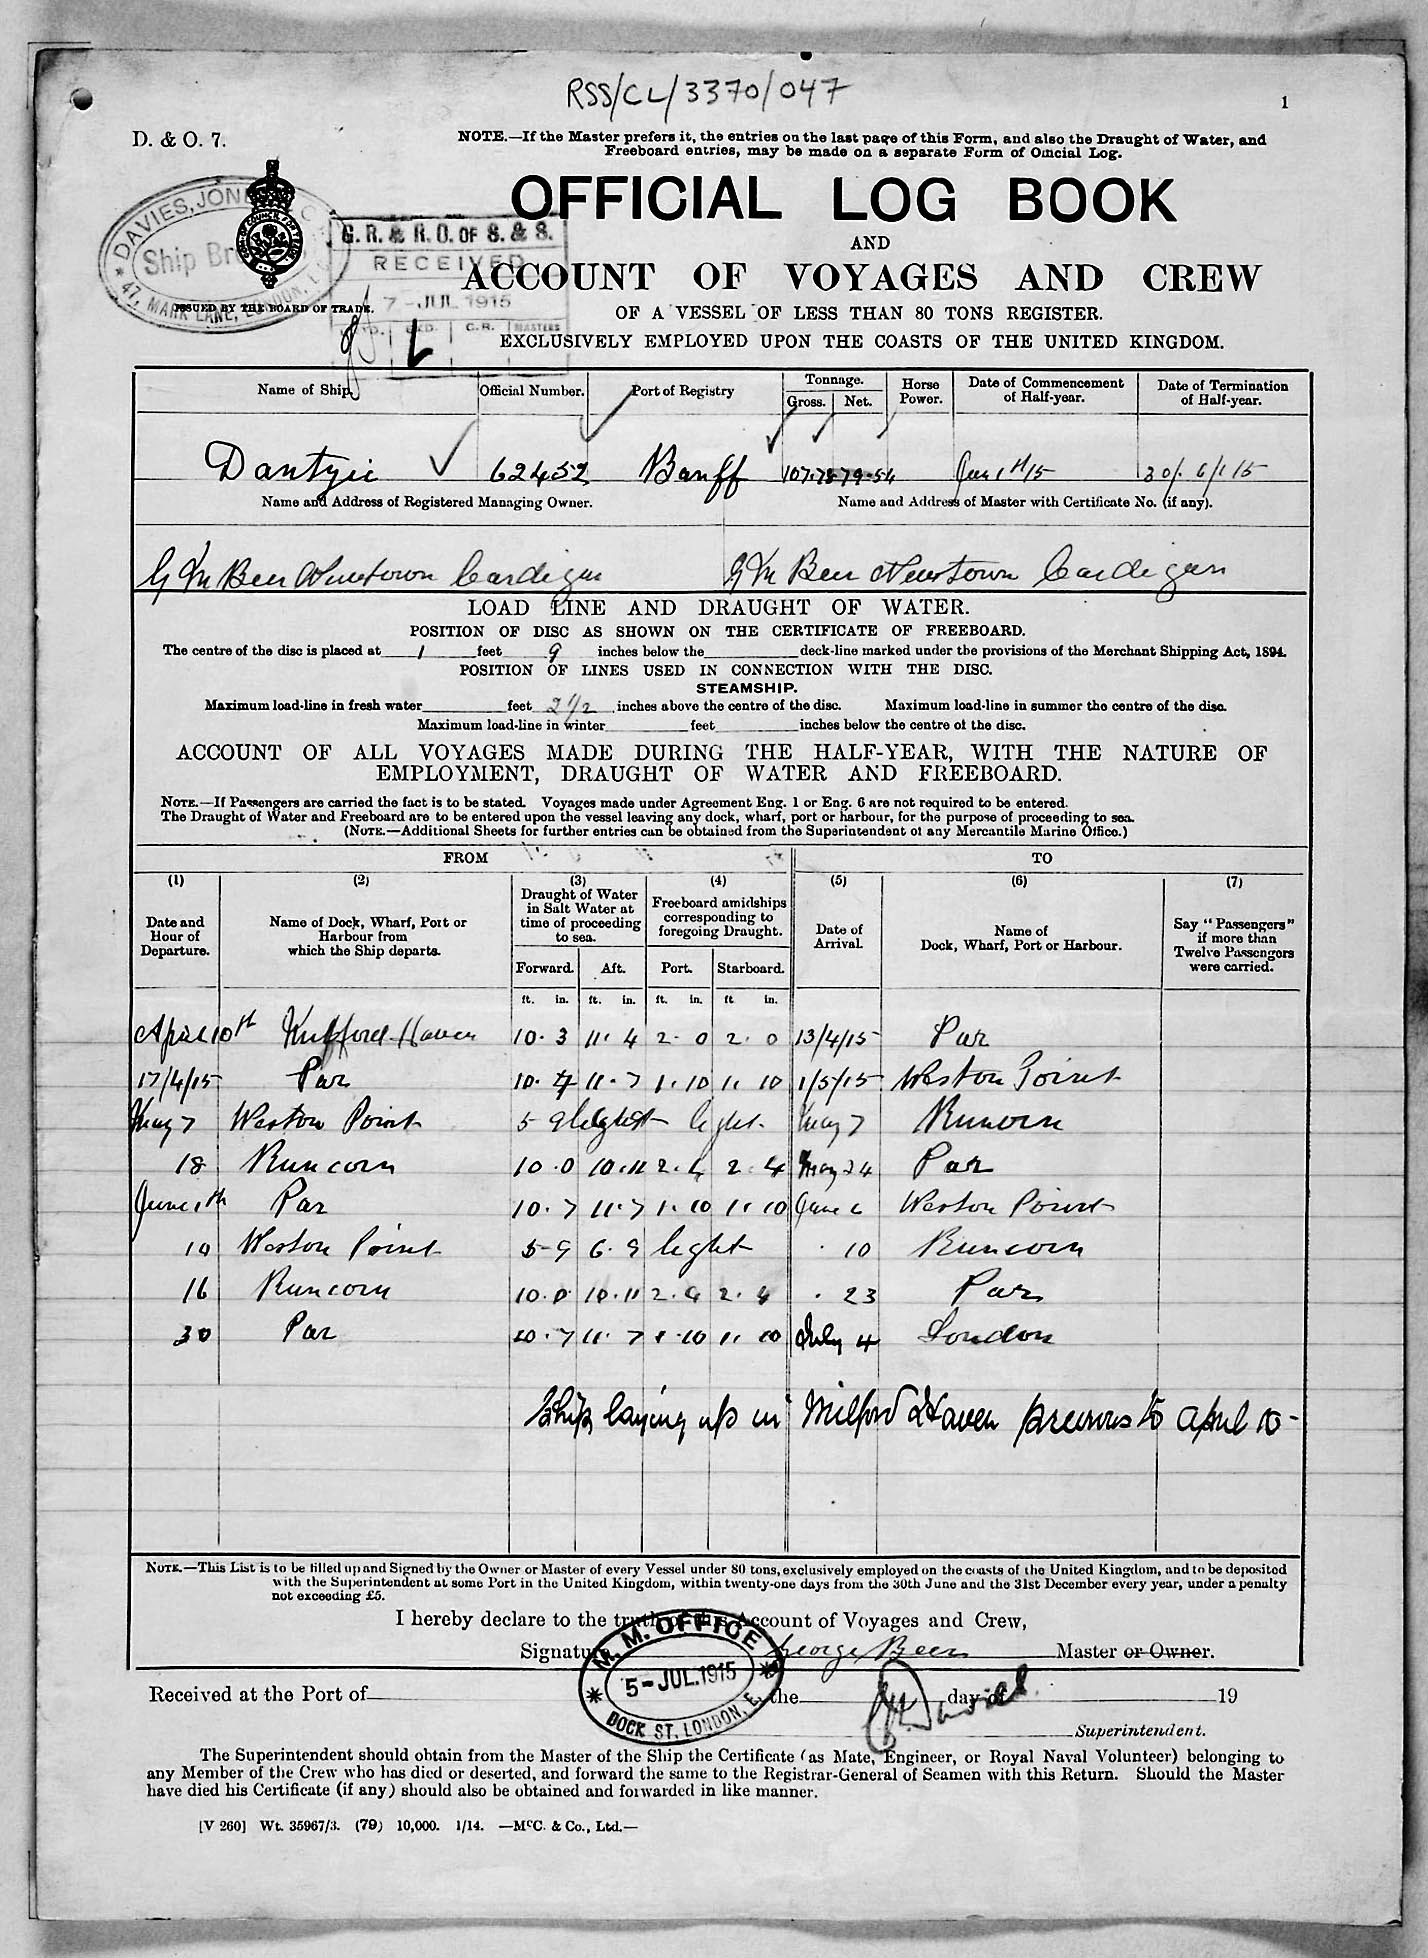 RSS/CL/3370/047
1
D. & O. 7.
NOTE.—If the Master prefers it, the entries on the last page of this Form, and also the Draught of Water, and
Freeboard entries, may be made on a separate Form of Official Log.
OFFICIAL LOG BOOK
AND
ACCOUNT OF VOYAGES AND CREW
OF A VESSEL OF LESS THAN 80 TONS REGISTER.
EXCLUSIVELY EMPLOYED UPON THE COASTS OF THE UNITED KINGDOM.
DAVIES, JON
Ship Br
47, MARK LANE, LONDON, E.
ISSUED BY THE BOARD OF TRADE.
G. R. & R. O. OF S. & S.
RECEIVED
7 - JUL 1915
C.R. MASTERS
Name of Ship. Official Number. Port of Registry Tonnage. Gross. Net. Horse Power. Date of Commencement of Half-year. Date of Termination of Half-year.
Dantzic 62452 Banff 107.78 79.54 Jan 1st/15 30/6/15
Name and Address of Registered Managing Owner. Name and Address of Master with Certificate No. (if any).
G Beer Newtown Cardigan G Beer Newtown Cardigan
LOAD LINE AND DRAUGHT OF WATER.
POSITION OF DISC AS SHOWN ON THE CERTIFICATE OF FREEBOARD.
The centre of the disc is placed at 1 feet 9 inches below the deck-line marked under the provisions of the Merchant Shipping Act, 1894.
POSITION OF LINES USED IN CONNECTION WITH THE DISC.
STEAMSHIP.
Maximum load-line in fresh water feet 2 1/2 inches above the centre of the disc. Maximum load-line in summer the centre of the disc.
Maximum load-line in winter feet inches below the centre of the disc.
ACCOUNT OF ALL VOYAGES MADE DURING THE HALF-YEAR, WITH THE NATURE OF
EMPLOYMENT, DRAUGHT OF WATER AND FREEBOARD.
NOTE.—If Passengers are carried the fact is to be stated. Voyages made under Agreement Eng. 1 or Eng. 6 are not required to be entered.
The Draught of Water and Freeboard are to be entered upon the vessel leaving any dock, wharf, port or harbour, for the purpose of proceeding to sea.
(NOTE.—Additional Sheets for further entries can be obtained from the Superintendent of any Mercantile Marine Office.)
FROM TO
(1) (2) (3) (4) (5) (6) (7)
Date and Hour of Departure. Name of Dock, Wharf, Port or Harbour from which the Ship departs. Draught of Water in Salt Water at time of proceeding to sea. Freeboard amidships corresponding to foregoing Draught. Date of Arrival. Name of Dock, Wharf, Port or Harbour. Say "Passengers" if more than Twelve Passengers were carried.
Forward. Aft. Port. Starboard.
ft. in. ft. in. ft. in. ft in.
April 10th Milford Haven 10.3 11.4 2.0 2.0 13/4/15 Par
17/4/15 Par 10.7 11.7 1.10 1.10 1/5/15 Weston Point
May 7 Weston Point 5-9 light light May 7 Runcorn
18 Runcorn 10.0 10.11 2.4 2.4 May 24 Par
June 1th Par 10.7 11.7 1.10 1.10 June 6 Weston Point
10 Weston Point 5-9 6.9 light 10 Runcorn
16 Runcorn 10.0 10.11 2.4 2.4 23 Par
30 Par 10.7 11.7 1.10 1.10 July 4 London
Ship laying up in Milford Haven previous to April 10-
NOTE.—This List is to be filled up and Signed by the Owner or Master of every Vessel under 80 tons, exclusively employed on the coasts of the United Kingdom, and to be deposited
with the Superintendent at some Port in the United Kingdom, within twenty-one days from the 30th June and the 31st December every year, under a penalty
not exceeding £5.
I hereby declare to the truth of this Account of Voyages and Crew,
Signature George Beer Master or Owner.
M. M. OFFICE
5-JUL.1915
DOCK ST. LONDON, E.
Received at the Port of the day of 19
Superintendent.
The Superintendent should obtain from the Master of the Ship the Certificate (as Mate, Engineer, or Royal Naval Volunteer) belonging to
any Member of the Crew who has died or deserted, and forward the same to the Registrar-General of Seamen with this Return. Should the Master
have died his Certificate (if any) should also be obtained and forwarded in like manner.
[V 260] Wt. 35967/3. (79) 10,000. 1/14. —McC. & Co., Ltd.—